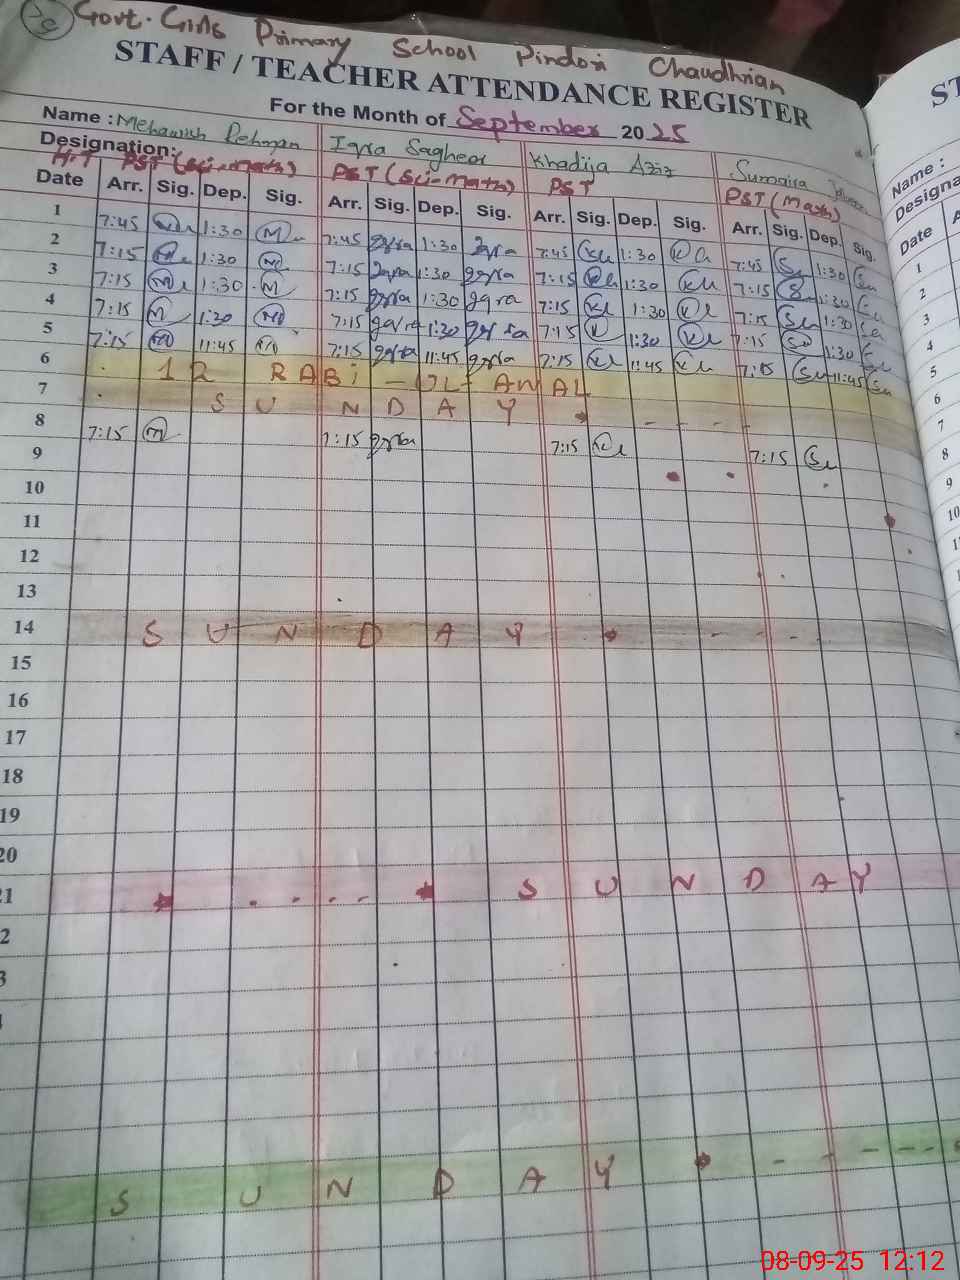 Govt. Girls Primary School Pindori Chaudhrian
STAFF / TEACHER ATTENDANCE REGISTER
For the Month of September 2025
Name : Mehawish Rehman Iqra Sagheer Khadija Aziz Sumaira
Designation: H.T PST (Sci-math) PST (Sci-math) PST PST (Math)
Date Arr. Sig. Dep. Sig. Arr. Sig. Dep. Sig. Arr. Sig. Dep. Sig. Arr. Sig. Dep. Sig.
1 7:45 1:30 M 7:45 Iqra 1:30 Iqra 7:45 1:30 7:45 1:30
2 7:15 1:30 M 7:15 Iqra 1:30 Iqra 7:15 1:30 7:15 1:30
3 7:15 M 1:30 M 7:15 Iqra 1:30 Iqra 7:15 1:30 7:15 1:30
4 7:15 M 1:30 M 7:15 Iqra 1:30 Iqra 7:15 1:30 7:15 1:30
5 7:15 M 11:45 M 7:15 Iqra 11:45 Iqra 7:15 11:45 7:15 11:45
6 12 RABi - UL - AWAL
7 SUNDAY
8 7:15 M 7:15 Iqra 7:15 7:15
9
10
11
12
13
14 SUNDAY
15
16
17
18
19
20
21 SUNDAY
2
3
SUNDAY
ST
Name :
Designa
Date
1
2
3
4
5
6
7
8
9
10
08-09-25 12:12